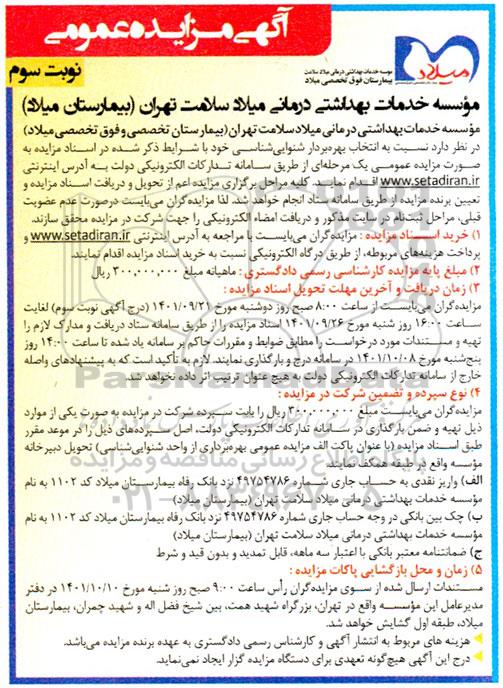 آگهی مزایده عمومی
میلاد
موسسه خدمات بهداشتی درمانی میلاد سلامت
بیمارستان فوق تخصصی میلاد
نوبت سوم
مؤسسه خدمات بهداشتی درمانی میلاد سلامت تهران (بیمارستان میلاد)
مؤسسه خدمات بهداشتی درمانی میلاد سلامت تهران (بیمارستان تخصصی و فوق تخصصی میلاد)
در نظر دارد نسبت به انتخاب بهره‌بردار شنوایی‌شناسی خود با شرایط ذکر شده در اسناد مزایده به
صورت مزایده عمومی یک مرحله‌ای از طریق سامانه تدارکات الکترونیکی دولت به آدرس اینترنتی
www.setadiran.ir اقدام نماید. کلیه مراحل برگزاری مزایده اعم از تحویل و دریافت اسناد مزایده و
تعیین برنده مزایده از طریق سامانه ستاد انجام خواهد شد. لذا مزایده‌گران می‌بایست درصورت عدم عضویت
قبلی، مراحل ثبت‌نام در سایت مذکور و دریافت امضاء الکترونیکی را جهت شرکت در مزایده محقق سازند.
۱) خرید اسناد مزایده : مزایده‌گران می‌بایست با مراجعه به آدرس اینترنتی www.setadiran.ir و
پرداخت هزینه‌های مربوطه، از طریق درگاه الکترونیکی نسبت به خرید اسناد مزایده اقدام نمایند.
۲) مبلغ پایه مزایده کارشناسی رسمی دادگستری : ماهیانه مبلغ ۳۰۰,۰۰۰,۰۰۰ ریال
۳) زمان دریافت و آخرین مهلت تحویل اسناد مزایده :
مزایده‌گران می‌بایست از ساعت ۸:۰۰ صبح روز دوشنبه مورخ ۱۴۰۱/۰۹/۲۱ (درج آگهی نوبت سوم) لغایت
ساعت ۱۶:۰۰ روز شنبه مورخ ۱۴۰۱/۰۹/۲۶ اسناد مزایده را از طریق سامانه ستاد دریافت و مدارک لازم را
تهیه و مستندات مورد درخواست را مطابق ضوابط و مقررات حاکم بر سامانه یاد شده تا ساعت ۱۴:۰۰ روز
پنج‌شنبه مورخ ۱۴۰۱/۱۰/۰۸ در سامانه درج و بارگذاری نمایند. لازم به تأکید است که به پیشنهادهای واصله
خارج از سامانه تدارکات الکترونیکی دولت به هیچ عنوان ترتیب اثر داده نخواهد شد.
۴) نوع سپرده و تضمین شرکت در مزایده :
مزایده‌گران می‌بایست مبلغ ۳۰۰,۰۰۰,۰۰۰ ریال را بابت سپرده شرکت در مزایده به صورت یکی از موارد
ذیل تهیه و ضمن بارگذاری در سامانه تدارکات الکترونیکی دولت، اصل سپرده‌های ذیل را در موعد مقرر
طبق اسناد مزایده (با عنوان پاکت الف مزایده عمومی بهره‌برداری از واحد شنوایی‌شناسی) تحویل دبیرخانه
مؤسسه واقع در طبقه همکف نمایند.
الف) واریز نقدی به حساب جاری شماره ۴۹۷۵۴۷۸۶ نزد بانک رفاه بیمارستان میلاد کد ۱۱۰۲ به نام
مؤسسه خدمات بهداشتی درمانی میلاد سلامت تهران (بیمارستان میلاد)
ب) چک بین بانکی در وجه حساب جاری شماره ۴۹۷۵۴۷۸۶ نزد بانک رفاه بیمارستان میلاد کد ۱۱۰۲ به نام
مؤسسه خدمات بهداشتی درمانی میلاد سلامت تهران (بیمارستان میلاد)
ج) ضمانتنامه معتبر بانکی با اعتبار سه ماهه، قابل تمدید و بدون قید و شرط
۵) زمان و محل بازگشایی پاکات مزایده :
مستندات ارسال شده از سوی مزایده‌گران رأس ساعت ۹:۰۰ صبح روز شنبه مورخ ۱۴۰۱/۱۰/۱۰ در دفتر
مدیرعامل این مؤسسه واقع در تهران، بزرگراه شهید همت، بین شیخ فضل اله و شهید چمران، بیمارستان
میلاد، طبقه اول گشایش خواهد شد.
هزینه های مربوط به انتشار آگهی و کارشناس رسمی دادگستری به عهده برنده مزایده می‌باشد.
درج این آگهی هیچ‌گونه تعهدی برای دستگاه مزایده گزار ایجاد نمی‌نماید.